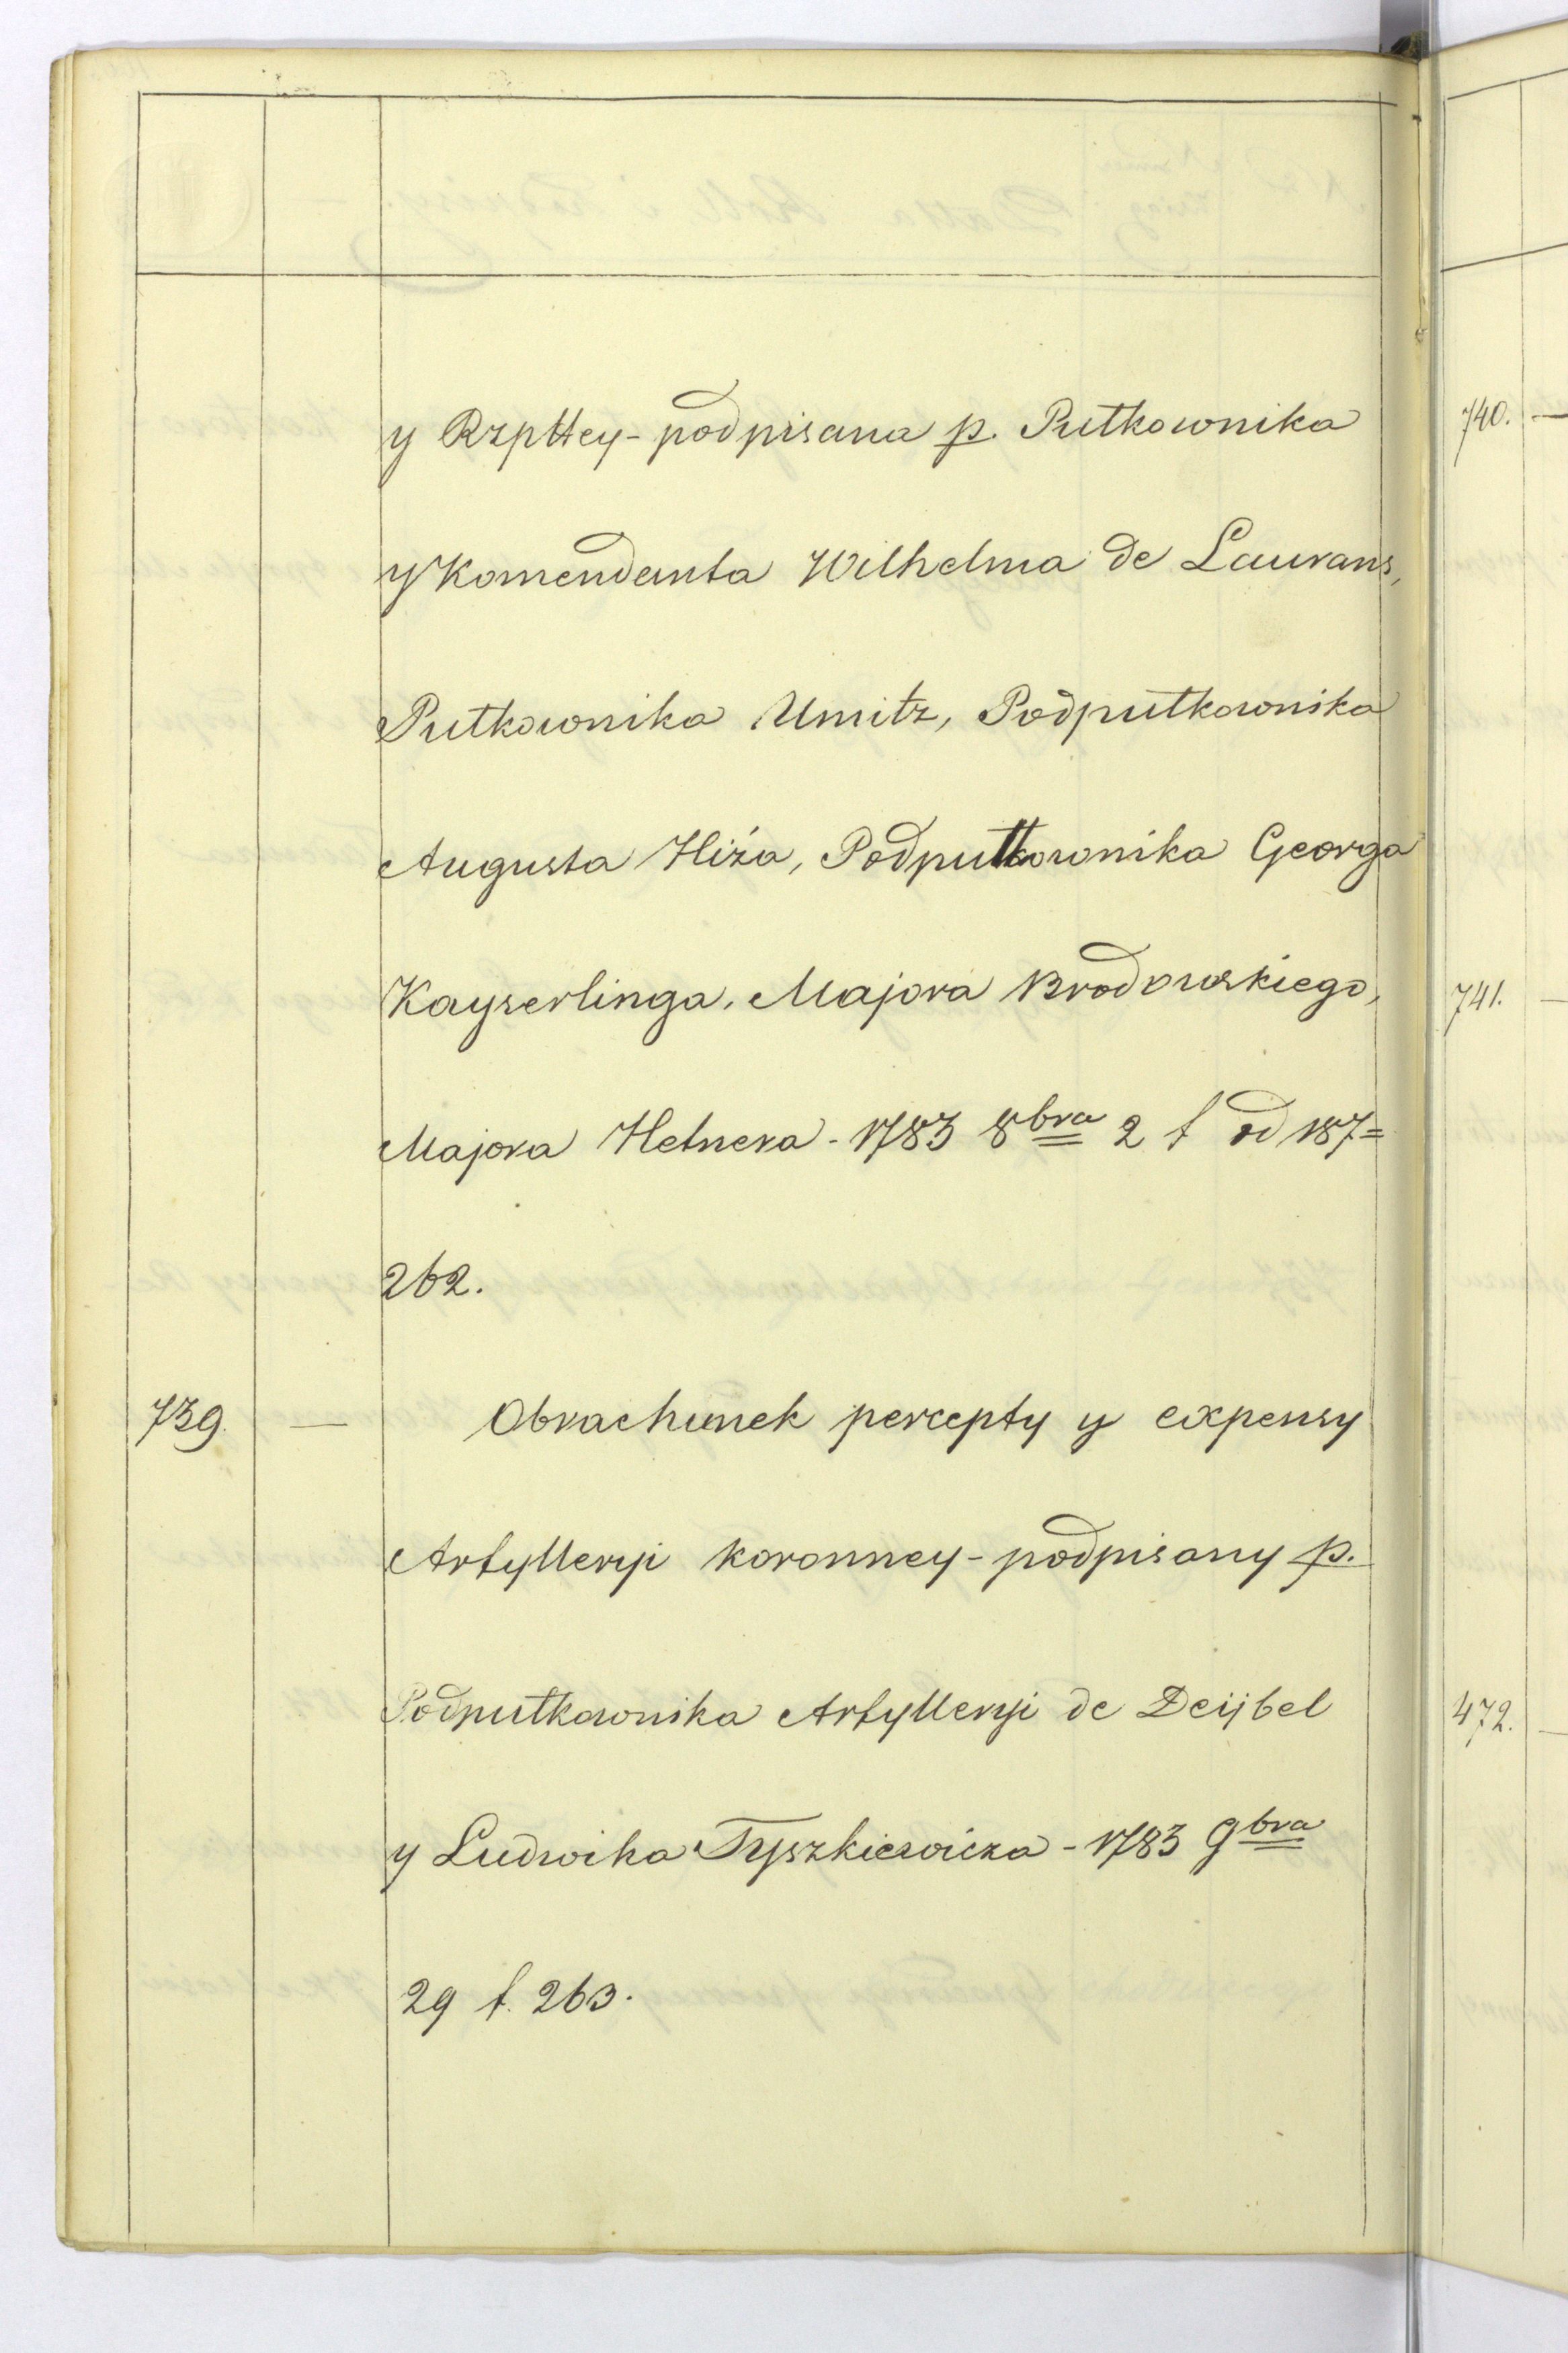 y Rzpttey - podpisana p. Pułkownika
y Komendanta Wilhelma de Laurans,
Pułkownika Unitz, Podpułkownika
Augusta Hiża, Podpułkownika Georga
Kayserlinga, Majora Brodowskiego,
Majora Hetnera - 1783 8bra 2 f od 187=
262.
739. — Obrachunek percepty y expensy
Artylleryi koronney - podpisany p.
Podpułkownika Artylleryi de Deijbel
y Ludwika Tyszkiewicza - 1783 9bra
29 f. 263.
740. —
741. —
472. —